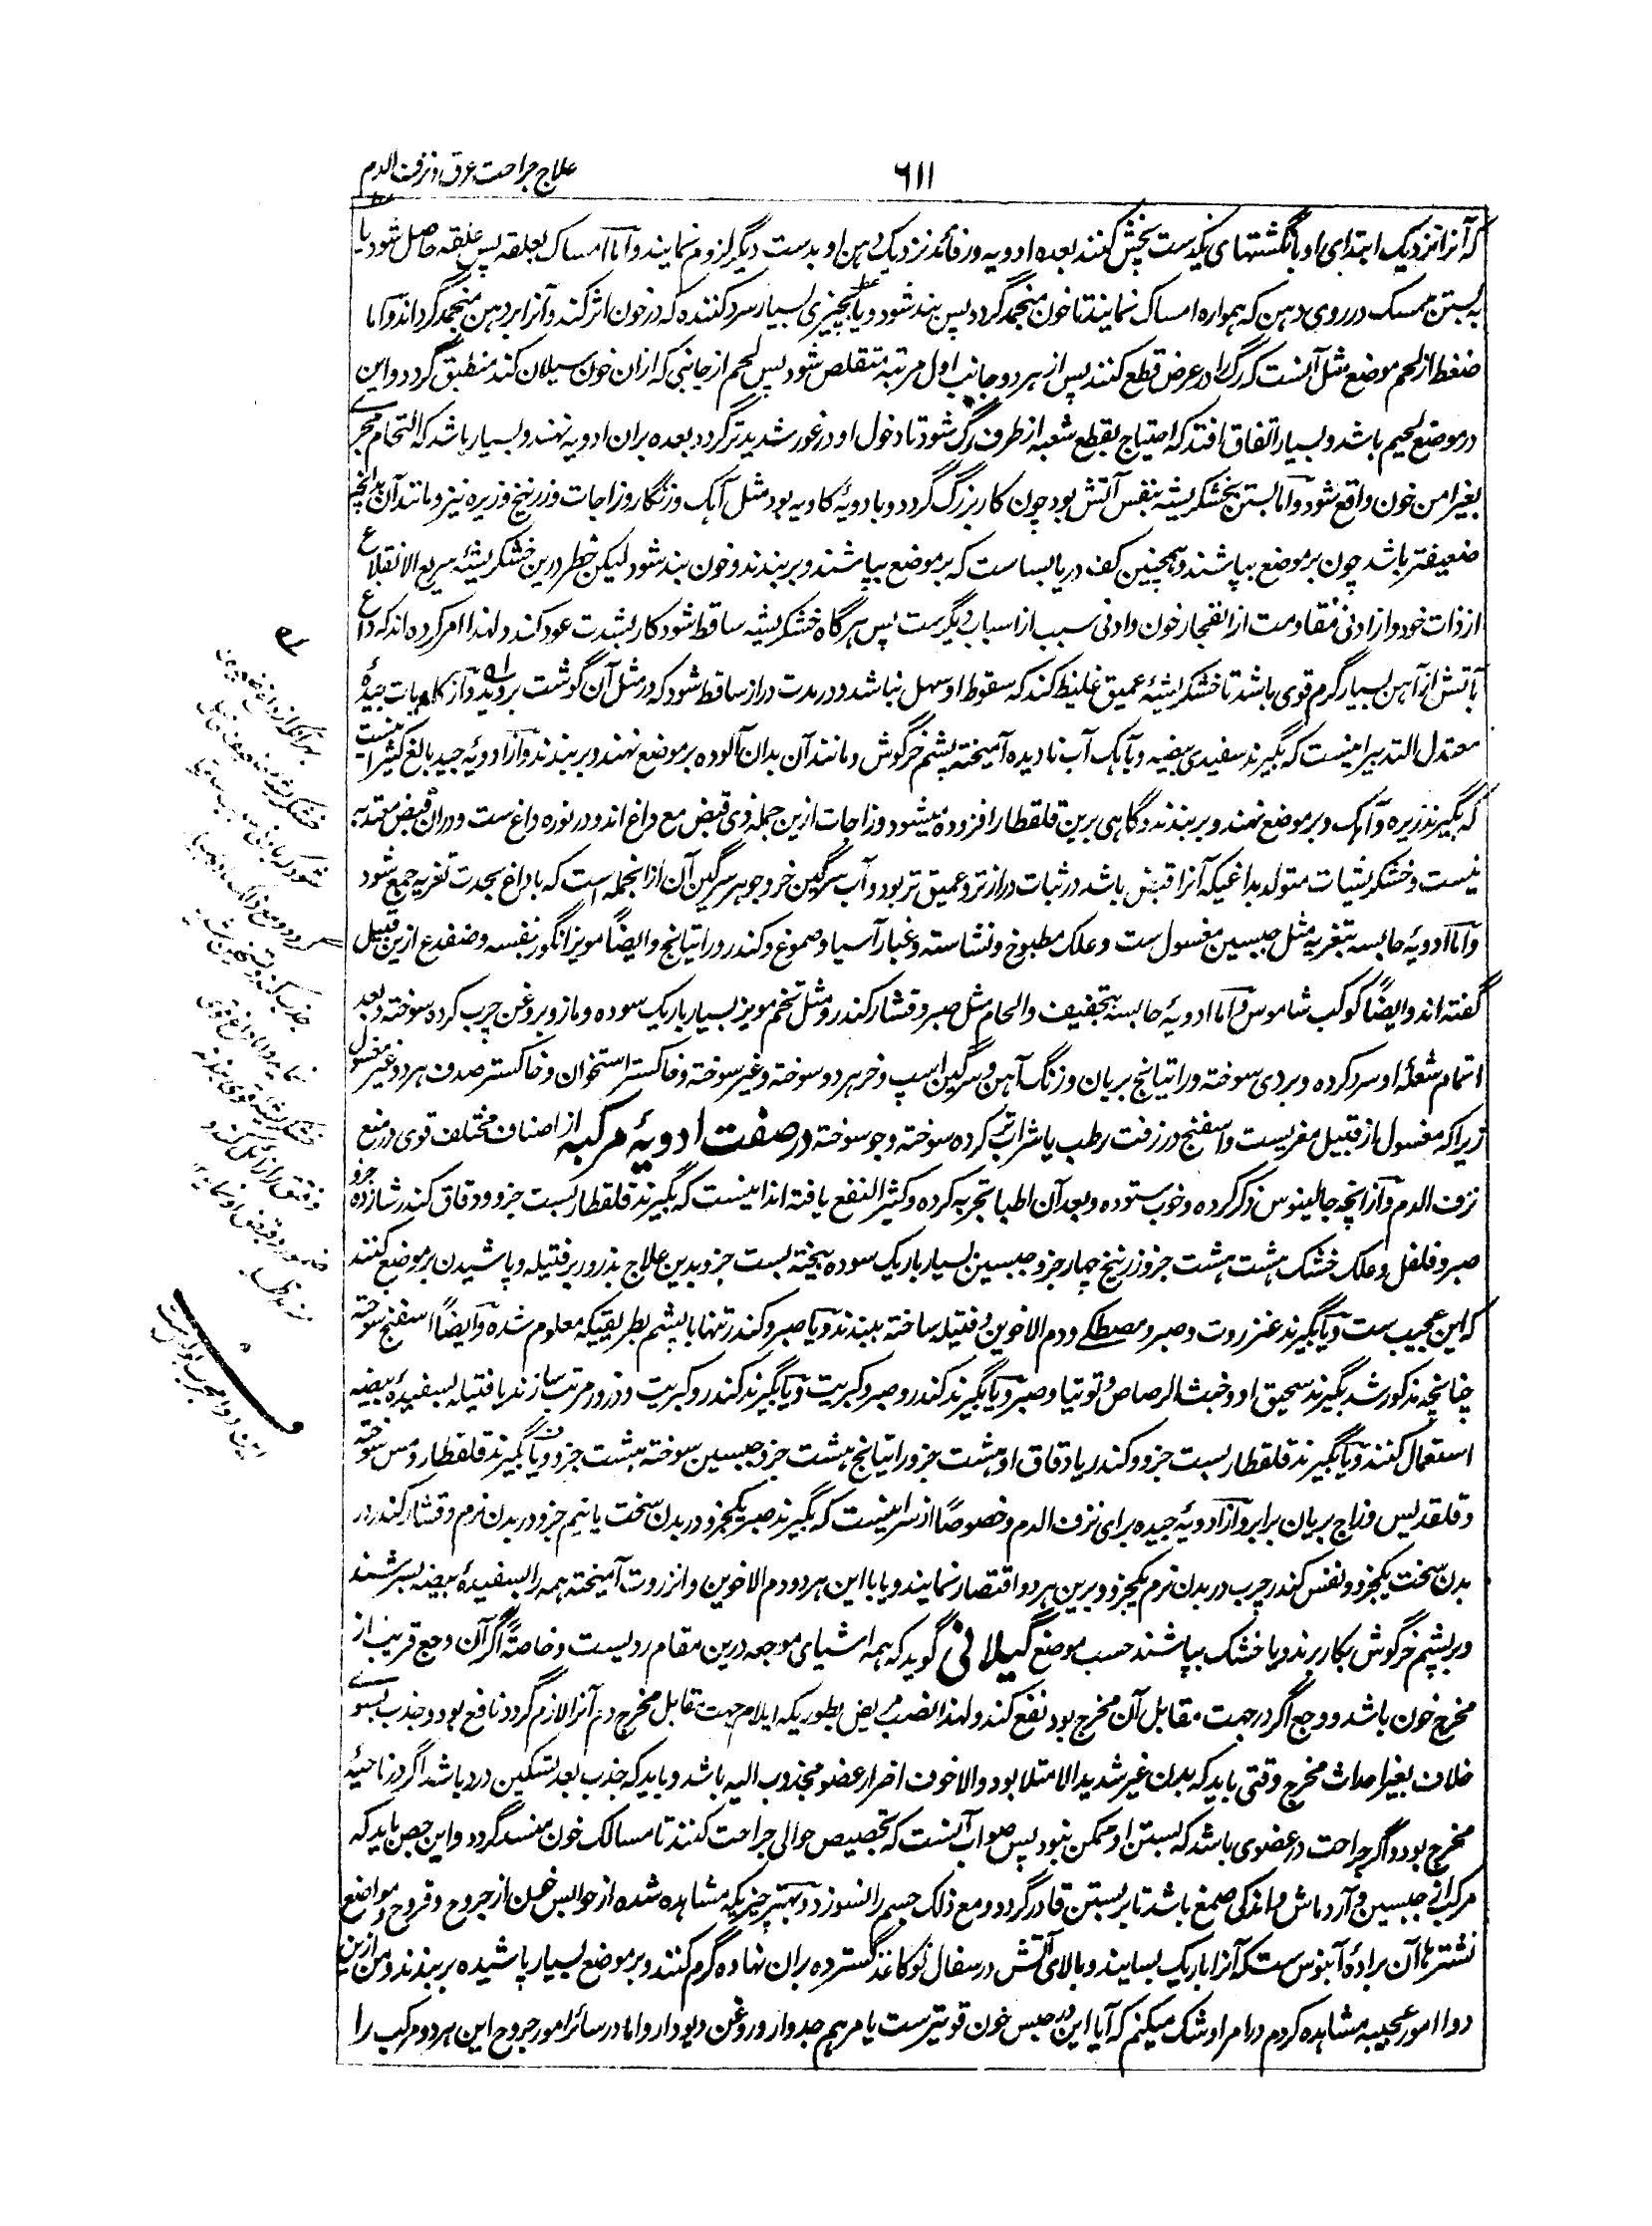 ٦١١
علاج جراحت عرق و نزف الدم
که آنرا نزدیک ابتدای او بانگشتهای یکدست بخش کنند بعده ادویه و رفائد نزدیک دهن او بدست دیگر لزوم نمایند و اما امساک بعلقه پس علقه حاصل شود یا
به بستن ممسک در روی دهن که همواره امساک نمایند تا خون منجمد گردد پس بند شود و یا بچیزی بسیار سرد کننده که در خون اثر کند و آنرا بر دهن منجمد گرداند و اما
ضغط از لحم موضع مثل آنست که رگ را در عرض قطع کنند پس از هر دو جانب اول مرتبه متقلص شود پس لحم از جانبی که ازان خون سیلان کند منطبق گردد و این
در موضع لحیم باشد و بسیار اتفاق افتد که احتیاج بقطع شعبه از طرف رگ شود تا دخول او در غور شدیدتر گردد بعده بران ادویه نهند و بسیار باشد که التحام مجری
بغیر امن خون واقع شود و اما بستن بخشکریشه بنفس آتش بود چون کار بزرگ گردد و بادویۀ کاویه بود مثل آهک و زنگار و زاجات و زرنیخ و زیره نیز و مانند آن بدانچه
ضعیفتر باشد چون بر موضع بپاشند و همچنین کف دریا بسا ست که بر موضع بپاشند و بربندند و خون بند شود لیکن خطر درین خشکریشۀ سریع الانقلاع
از ذات خود و از ادنی مقاومت از انفجار خون و ادنی سبب از اسباب دیگرست پس هرگاه خشکریشه ساقط شود کار بشدت عود کند و لهذا امر کرده اند که داغ
بآتش از آهن بسیار گرم قوی باشد تا خشکریشۀ عمیق غلیظ کند که سقوط او سهل نباشد و در مدت دراز ساقط شود که در مثل آن گوشت بروید و از کاویات جیده
معتدل التدبیر اینست که بگیرند سفیدی بیضه و بآهک آب نادیده آمیخته پشم خرگوش و مانند آن بدان آلوده بر موضع نهند و بربندند و از ادویۀ جید بالغ کثیر اینست
که بگیرند زیره و آهک و بر موضع نهند و بربندند و گاهی برین قلقطار افزوده میشود و زاجات ازین جمله ذی قبض مع داغ اند و در نوره داغ ست و دران قبض معتد به
نیست و خشکریشیات متولد بداغیکه آنرا قبض باشد در ثبات درازتر و عمیق تر بود و آب سرگین خر و جوهر سرگین آن ازانجمله است که با داغ بحدت تغریه جمع شود
و اما ادویۀ حابسه بتغریه مثل جبسین مغسول ست و علک مطبوخ و نشاسته و غبار آسیا و صموغ و کندر و راتیانج و ایضاً مویز انگور بنفسه و ضفدع ازین قبیل
گفته اند و ایضاً کوکب شاموس و اما ادویۀ حابسه بتجفیف و الحام مثل صبر و قشار کندر و مثل تخم مویز بسیار باریک سوده و مازو بروغن چرب کرده سوخته و بعد
اتمام شعلۀ او سرد کرده و بردی سوخته و راتیانج بریان و زنگ آهن و سرگین اسپ و خر هر دو سوخته و غیر سوخته و خاکستر استخوان و خاکستر صدف هر دو غیر مغسول
زیرا که مغسول از قبیل مغریست و اسفنج در زفت رطب یا شراب تر کرده سوخته و جو سوخته در صفت ادویۀ مرکبه از اصناف مختلف قوی در منع
نزف الدم و ازانچه جالینوس ذکر کرده و خوب ستوده و بعد آن اطبا تجربه کرده و کثیر النفع یافته اند اینست که بگیرند قلقطار بست جزو و دقاق کندر شانزده جزو
صبر و فلفل و علک خشک هشت هشت جزو زرنیخ چهار جزو جبسین بسیار باریک سوده بیخته بست جزو بدین علاج بذرور بر فتیله و پاشیدن بر موضع کنند
که این عجیب ست و یا بگیرند عنزروت و صبر و مصطکی و دم الاخوین و فتیله ساخته ببندند و یا صبر و کندر تنها با پشم بطریقیکه معلوم شده و ایضاً اسفنج سوخته
چنانچه مذکور شد بگیرند سحیق او و خبث الرصاص و توتیا و صبر و یا بگیرند کندر و صبر و کبریت و یا بگیرند کندر و کبریت و ذرور مرتب سازند یا فتیله بسفیدۀ بیضه
استعمال کنند و یا بگیرند قلقطار بست جزو و کندر یا دقاق او هشت جزو راتیانج هشت جزو جبسین سوخته هشت جزو و یا بگیرند قلقطار و مس سوخته
و قلقدیس و زاج بریان برابر و از ادویۀ جیده برای نزف الدم و خصوصاً از سر اینست که بگیرند صبر یکجزو در بدن سخت یا نیم جزو در بدن نرم و قشار کندر در
بدن سخت یکجزو و نفس کندر چرب در بدن نرم یکجزو و برین هر دو اقتصار نمایند و یا با این هر دو دم الاخوین و انزروت آمیخته همه را بسفیدۀ بیضه بسرشند
و بر پشم خرگوش بکار برند و یا خشک بپاشند حسب موضع گیلانی گوید که همه اشیای موجعه درین مقام ردیست و خاصةً اگر آن وجع قریب از
مخرج خون باشد و وجع اگر در جهت مقابل آن مخرج بود نفع کند و لهذا نصب مریض بطوریکه ایلام جهت مقابل مخرج دم آنرا لازم گردد نافع بود و جذب بسوی
خلاف بغیر احداث مخرج وقتی باید که بدن غیر شدید الامتلا بود و الا خوف اضرار عضو مجذوب الیه باشد و باید که جذب بعد تسکین درد باشد اگر در ناحیۀ
مخرج بود و اگر جراحت در عضوی باشد که بستن او ممکن نبود پس صواب آنست که تجصیص حوالی جراحت کنند تا مسالک خون منسد گردد و این جص باید که
مرکب از جبسین و آرد ماش و اندکی صمغ باشد تا بر بستن قادر گردد و مع ذلک جسم را نسوزد و بهتر چیزیکه مشاهده شده از حوابس خون از جروح و قروح و مواضع
نشتر ها آن برادۀ آبنوس ست که آنرا باریک بسایند و بالای آتش در سفال نو کاغذ گسترده بران نهاده گرم کنند و بر موضع بسیار پاشیده بربندند و من ازین
دوا امور عجیبه مشاهده کردم در امر او شک میکنم که آیا این در حبس خون قویترست یا مرهم جدوار و روغن دیودار و اما در سائر امور جروح این هر دو مرکب را